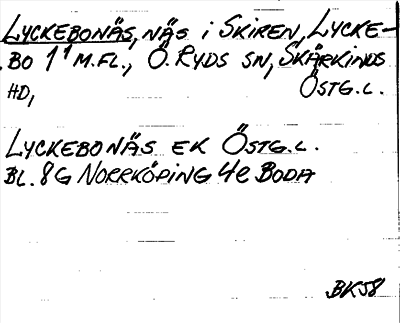 LYCKEBONÄS, NÄS I SKIREN, LYCKE-
BO 1¹ M.FL., Ö. RYDS SN, SKÄRKINDS
HD, ÖSTG.L.
LYCKEBONÄS EK ÖSTG.L.
BL. 8G NORRKÖPING 4e BODA
BK58